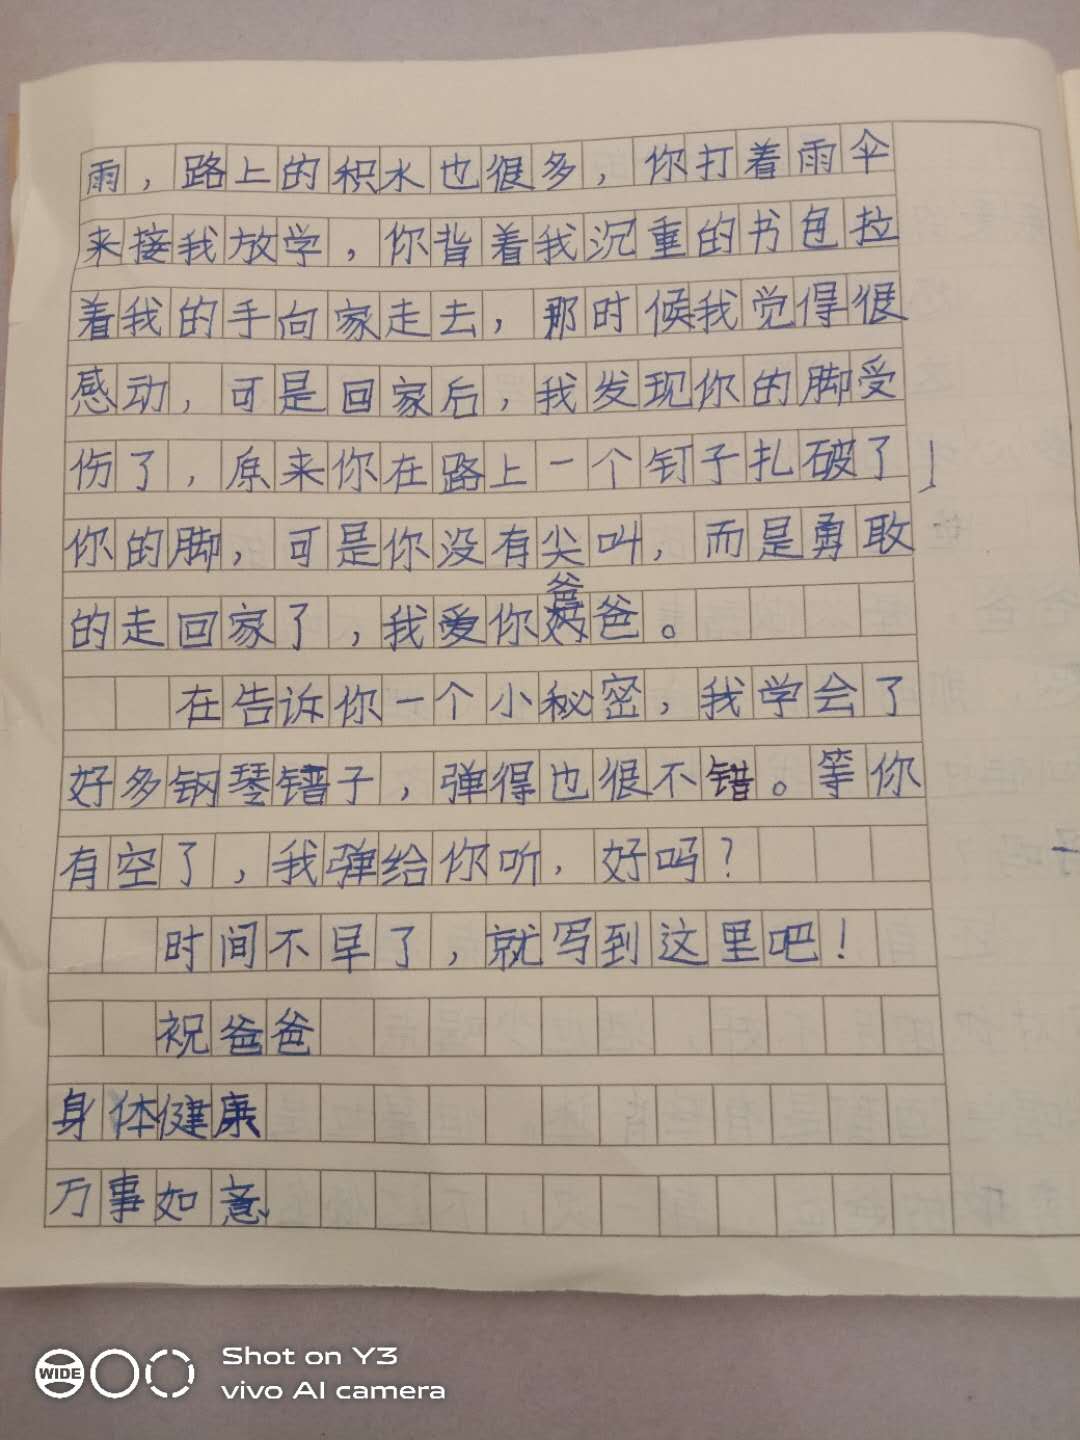 雨，路上的积水也很多，你打着雨伞
来接我放学，你背着我沉重的书包拉
着我的手向家走去，那时候我觉得很
感动，可是回家后，我发现你的脚受
伤了，原来你在路上一个钉子扎破了
你的脚，可是你没有尖叫，而是勇敢
的走回家了，我爱你爸爸。
在告诉你一个小秘密，我学会了
好多钢琴子，弹得也很不错。等你
有空了，我弹给你听，好吗？
时间不早了，就写到这里吧！
祝爸爸
身体健康
万事如意
WIDE
Shot on Y3
vivo AI camera